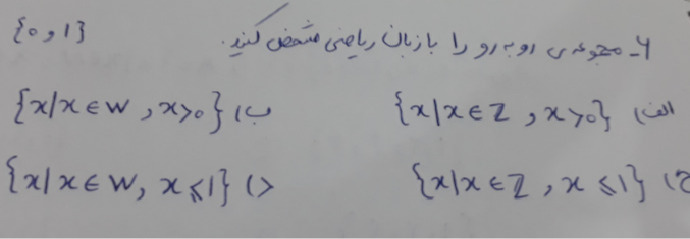 ۶- مجموعه‌ی روبه‌رو را با زبان ریاضی مشخص کنید. {۰ و ۱}
الف) {x|x∈Z , x>۰} ب) {x|x∈W , x>۰}
ج) {x|x∈Z , x⩽۱} د) {x|x∈W, x⩽۱}